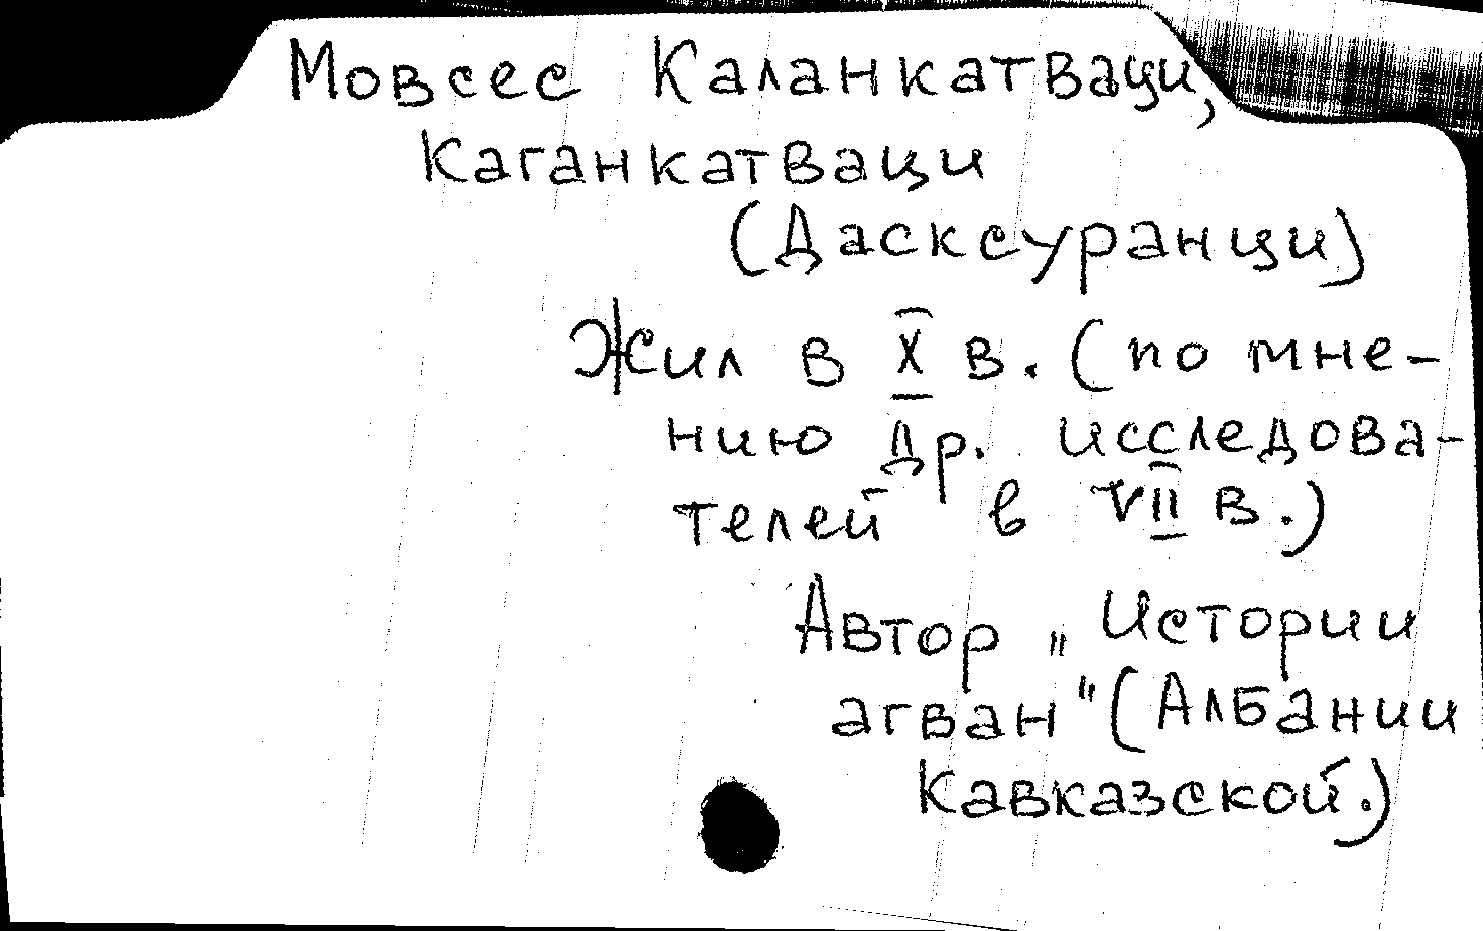 Мовсес Каланкатваци,
Каганкатваци
(Дасксуранци)
Жил в X в. (по мне-
нию др. исследова-
телей в VII в.)
Автор „Истории
агван" (Албании
Кавказской.)